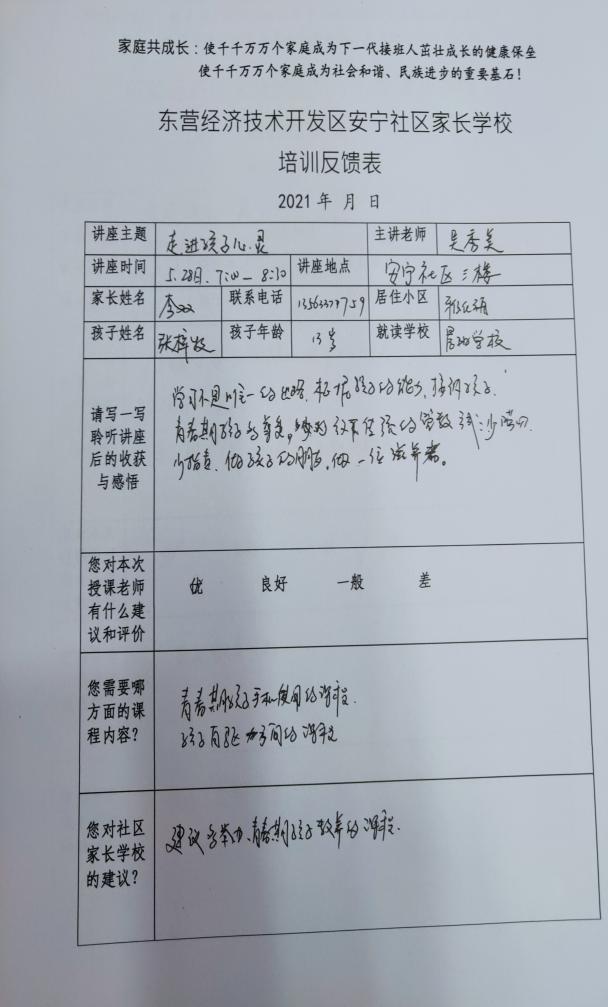 家庭共成长：使千千万万个家庭成为下一代接班人茁壮成长的健康保垒
使千千万万个家庭成为社会和谐、民族进步的重要基石！
东营经济技术开发区安宁社区家长学校
培训反馈表
2021 年 月 日
讲座主题 走进孩子心灵 主讲老师 吴秀美
讲座时间 5.28日. 7:00－8:30 讲座地点 安宁社区三楼
家长姓名 李 联系电话 居住小区
孩子姓名 张梓 孩子年龄 13岁 就读学校 学校
请写一写
聆听讲座
后的收获
与感悟
学习不是唯一的出路.根据孩子的能力,培训孩子.
青春期孩子的
少指责.做孩子的朋友.做一位滋养者。
您对本次
授课老师
有什么建
议和评价
优 良好 一般 差
您需要哪
方面的课
程内容？
青春期孩子手机使用的课程.
孩子自驱力方面的课程
您对社区
家长学校
的建议？
建议多举办.青春期孩子教养的课程.